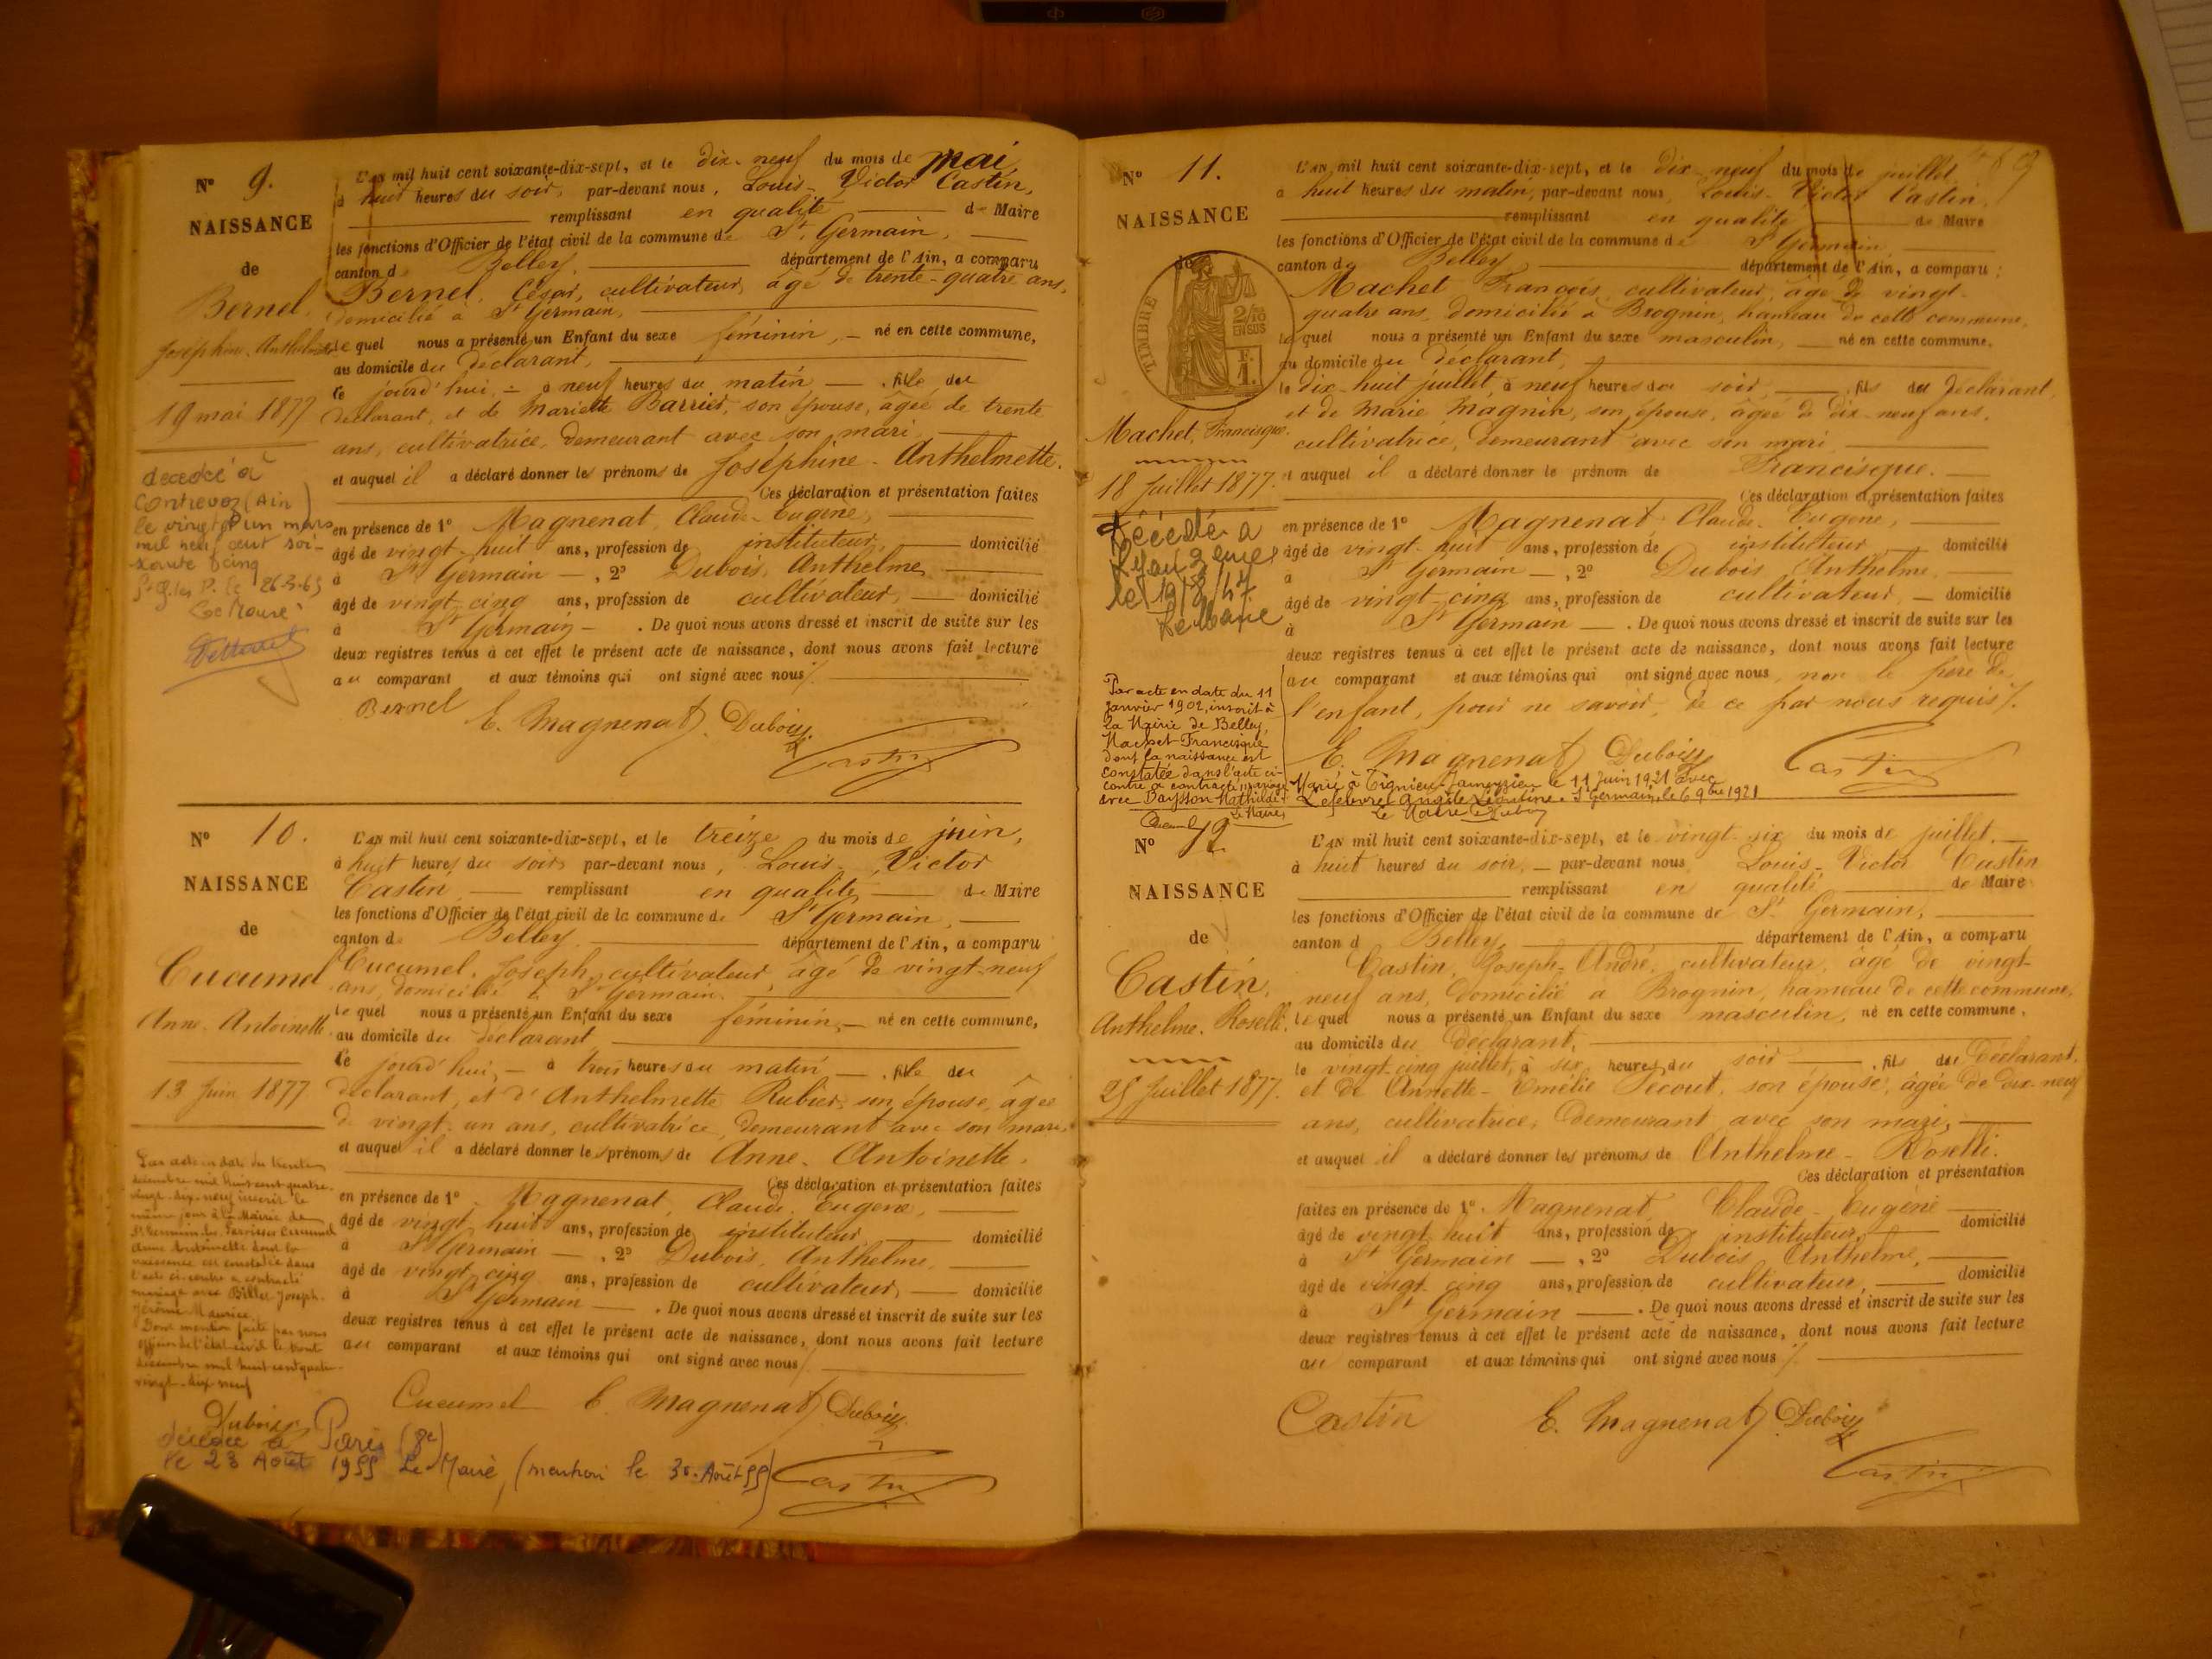 N° 9.
NAISSANCE
de
Bernel,
Joséphine-Anthelmette
19 mai 1877
décédée à
Contrevoz (Ain)
le vingt un mars
mil neuf cent soi-
xante cinq
St G. les P. le 26-3-65
Le Maire
L'AN mil huit cent soixante-dix-sept, et le dix-neuf du mois de mai
à huit heures du soir, par-devant nous, Louis-Victor Castin,
remplissant en qualité de Maire
les fonctions d'Officier de l'état civil de la commune de St Germain,
canton de Belley, département de l'Ain, a comparu
Bernel, César, cultivateur, âgé de trente-quatre ans,
domicilié à St Germain,
lequel nous a présenté un Enfant du sexe féminin, né en cette commune,
au domicile du déclarant,
le jourd'hui, à neuf heures du matin, fille du
déclarant, et de Mariette Barrier, son épouse, âgée de trente
ans, cultivatrice, demeurant avec son mari,
et auquel il a déclaré donner les prénoms de Joséphine-Anthelmette.
Ces déclaration et présentation faites
en présence de 1° Magnenat, Claude-Eugène,
âgé de vingt-huit ans, profession de instituteur, domicilié
à St Germain, 2° Dubois, Anthelme,
âgé de vingt-cinq ans, profession de cultivateur, domicilié
à St Germain. De quoi nous avons dressé et inscrit de suite sur les
deux registres tenus à cet effet le présent acte de naissance, dont nous avons fait lecture
au comparant et aux témoins qui ont signé avec nous
Bernel E. Magnenat Dubois
Castin
N° 10.
NAISSANCE
de
Cucumel
Anne-Antoinette
13 Juin 1877
Par acte en date du trente
décembre mil huit cent quatre-
vingt-dix-neuf inscrit le
même jour à la Mairie de
St Germain-les-Paroisses Cucumel
Anne Antoinette dont la
naissance est constatée dans
l'acte ci-contre a contracté
mariage avec Billes Joseph-
Jérôme Maurice.
Dont mention faite par nous
officier de l'état-civil le trente
décembre mil huit cent quatre-
vingt-dix neuf
Dubois
décédée à Paris (8e)
le 23 Août 1955 Le Maire, (mention le 30 Août 55)
L'AN mil huit cent soixante-dix-sept, et le treize du mois de juin,
à huit heures du soir par-devant nous, Louis-Victor
Castin remplissant en qualité de Maire
les fonctions d'Officier de l'état civil de la commune de St Germain,
canton de Belley, département de l'Ain, a comparu
Cucumel, Joseph, cultivateur, âgé de vingt-neuf
ans, domicilié à St Germain,
lequel nous a présenté un Enfant du sexe féminin, né en cette commune,
au domicile du déclarant
le jourd'hui, à trois heures du matin, fille du
déclarant, et d'Anthelmette Rubier, son épouse, âgée
de vingt-un ans, cultivatrice, demeurant avec son mari,
et auquel il a déclaré donner les prénoms de Anne-Antoinette.
Ces déclaration et présentation faites
en présence de 1° Magnenat, Claude-Eugène,
âgé de vingt-huit ans, profession de instituteur domicilié
à St Germain, 2° Dubois, Anthelme,
âgé de vingt-cinq ans, profession de cultivateur, domicilié
à St Germain. De quoi nous avons dressé et inscrit de suite sur les
deux registres tenus à cet effet le présent acte de naissance, dont nous avons fait lecture
au comparant et aux témoins qui ont signé avec nous
Cucumel E. Magnenat Dubois
Castin
N° 11.
NAISSANCE
de
TIMBRE
2/10
EN SUS
F.
1.
Machet, Francisque.
18 Juillet 1877.
Décédé à
Lyon 2eme
le
Le Maire
Par acte en date du 11
Janvier 1902, inscrit à
la Mairie de Belley,
Machet Francisque
dont la naissance est
constatée dans l'acte ci-
contre a contracté mariage
avec Baysson Mathilde.
Le Maire,
L'AN mil huit cent soixante-dix-sept, et le dix-neuf du mois de juillet,
à huit heures du matin, par-devant nous, Louis-Victor Castin,
remplissant en qualité de Maire
les fonctions d'Officier de l'état civil de la commune de St Germain
canton de Belley département de l'Ain, a comparu :
Machet François, cultivateur, âgé de vingt-
quatre ans, domicilié à Brognin, hameau de cette commune,
lequel nous a présenté un Enfant du sexe masculin, né en cette commune,
au domicile du déclarant,
le dix-huit juillet, à neuf heures du soir, fils du déclarant,
et de Marie Magnin, son épouse, âgée de dix-neuf ans,
cultivatrice, demeurant avec son mari
et auquel il a déclaré donner le prénom de Francisque.
Ces déclaration et présentation faites
en présence de 1° Magnenat Claude-Eugène,
âgé de vingt-huit ans, profession de instituteur domicilié
à St Germain, 2° Dubois Anthelme
âgé de vingt-cinq ans, profession de cultivateur, domicilié
à St Germain. De quoi nous avons dressé et inscrit de suite sur les
deux registres tenus à cet effet le présent acte de naissance, dont nous avons fait lecture
au comparant et aux témoins qui ont signé avec nous, non le père de
l'enfant, pour ne savoir, de ce par nous requis.
E. Magnenat Dubois Castin
Marié à Tignieu-Jameyzieu le 11 Juin 1921 avec
Lefebvre Angèle Léontine. St Germain, le 6 9bre 1921
Le Maire Dubois
N° 12
NAISSANCE
de
Castin,
Anthelme-Roselli.
25 Juillet 1877.
L'AN mil huit cent soixante-dix-sept, et le vingt-six du mois de juillet,
à huit heures du soir, par-devant nous Louis-Victor Castin
remplissant en qualité de Maire
les fonctions d'Officier de l'état civil de la commune de St Germain,
canton d Belley, département de l'Ain, a comparu
Castin, Joseph-André, cultivateur, âgé de vingt-
neuf ans, domicilié à Brognin, hameau de cette commune,
lequel nous a présenté un Enfant du sexe masculin, né en cette commune,
au domicile du déclarant,
le vingt-cinq juillet, à six heures du soir, fils du déclarant,
et de Annette-Emélie Decout, son épouse, âgée de dix-neuf
ans, cultivatrice, demeurant avec son mari,
et auquel il a déclaré donner les prénoms de Anthelme-Roselli.
Ces déclaration et présentation
faites en présence de 1° Magnenat Claude-Eugène
âgé de vingt-huit ans, profession de instituteur, domicilié
à St Germain, 2° Dubois Anthelme,
âgé de vingt-cinq ans, profession de cultivateur, domicilié
à St Germain. De quoi nous avons dressé et inscrit de suite sur les
deux registres tenus à cet effet le présent acte de naissance, dont nous avons fait lecture
au comparant et aux témoins qui ont signé avec nous
Castin E. Magnenat Dubois
Castin